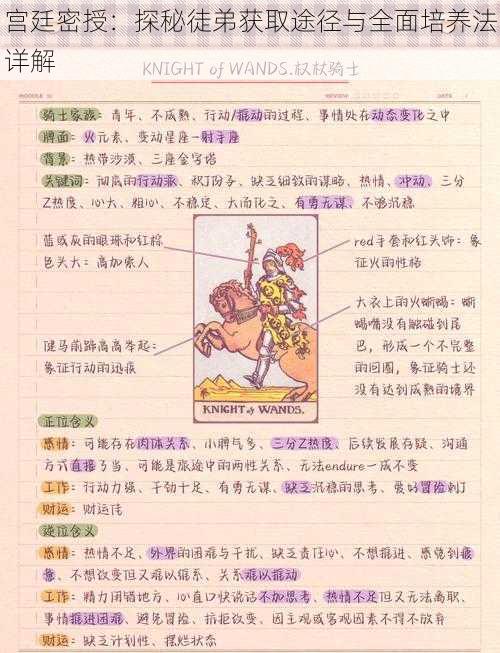 宫廷密授：探秘徒弟获取途径与全面培养法
详解
KNIGHT of WANDS.权杖骑士
MODULE 10
REVIEW
DATE
骑士家族：青年、不成熟、行动/推动的过程、事情处在动态变化之中
牌面：火元素、变动星座-射手座
背景：热带沙漠、三座金字塔
关键词：彻底的行动派、积极份子、缺乏细致的谋略、热情、冲动、三分
Z热度、心大、粗心、不稳定、大而化之、有勇无谋、不够沉稳
蓝或灰的眼珠和红棕
色头大：高加索人
red手套和红头饰：象
征火的性格
大衣上的火蜥蜴：蜥
蜴嘴没有触碰到尾
巴，形成一个不完整
的回圆，象征骑士还
没有达到成熟的境界
健马前蹄高高举起：
象征行动的迅疾
KNIGHT of WANDS.
正位含义
感情：可能存在肉体关系、小脾气多、三分Z热度、后续发展存疑、沟通
方式直接了当、可能是旅途中的两性关系、无法endure一成不变
工作：行动力强、干劲十足、有勇无谋、缺乏沉稳的思考、爱好冒险刺J
财运：财运佳
逆位含义
感情：热情不足、外界的困难与干扰、缺乏责任心、不想推进、感觉到疲
惫、不想改变但又难以维系、关系难以推动
工作：精力用错地方、心直口快说话不加思考、热情不足但又无法离职、
事情推进困难、避免冒险、抗拒改变、因主观或客观因素不得不放弃
财运：缺乏计划性、摆烂状态